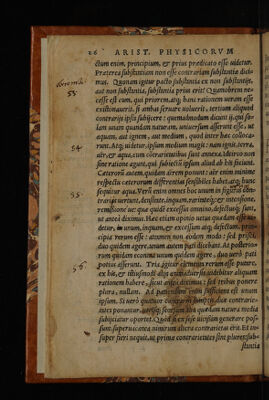 26 ARIST. PHYSICORVM
ctum enim, principium, & prius predicato esse videtur.
Præterea substantiam non esse contrariam substantiæ dici-
mus. Quonam igitur pacto substantia ex non substantijs,
aut non substantia, substantia prius erit? Quamobrem ne-
cesse est eum, qui priorem, atq; hanc rationem veram esse
existimauerit, si ambas seruare voluerit, tertium aliquod
contrarijs ipsis subijcere: quemadmodum dicunt ij, qui so-
lam unam quandam naturam, vniuersum asserunt esse, ut
aquam, aut ignem, aut medium, quod inter hæc colloca-
runt. Atq; videtur, ipsum medium magis: nam ignis, terra,
aër, & aqua, cum contrarietatibus sunt annexa. Idcirco non
sine ratione agunt, qui subiectū ipsum aliud ab his faciunt.
Ceterorū autem, quidam aërem ponunt: aër enim minime
respectu ceterorum differentias sensibiles habet, atq; hunc
sequitur aqua. Verū enim omnes hoc unum
trarijs vertunt, densitate, inquam, raritateq; & intensione,
remissione ue: quæ quidē excessus omnino, defectusq; sunt,
ut antea diximus. Hæc etiam opinio vetus quædam esse vi-
detur, in unum, inquam, & excessum atq; defectum, prin-
cipia rerum esse: attamen non eodem modo: sed prisci,
duo quidem agere, unum autem pati dicebant. At posterio-
rum quidam econtra unum quidem agere, duo verò pati
potius asserunt. Tria igitur elementa rerum esse putare,
ex his, & eiusmodi alijs animaduersis videbitur aliquam
rationem habere, sicut antea diximus: sed tribus ponere
plura, nullam. Ad patiendum enim sufficiens est unum
ipsum. Si verò quatuor duæ contrarie-
tates ponantur, utrisq; seorsum alia quædam natura media
subijciatur oportet. Quòd si ex sese ipsis generare pos-
sunt, superuacanea nimirum altera contrarietas erit. Et in-
super fieri nequit, ut primæ contrarietates sint plures: sub-
stantia
53.
54
55.
56.